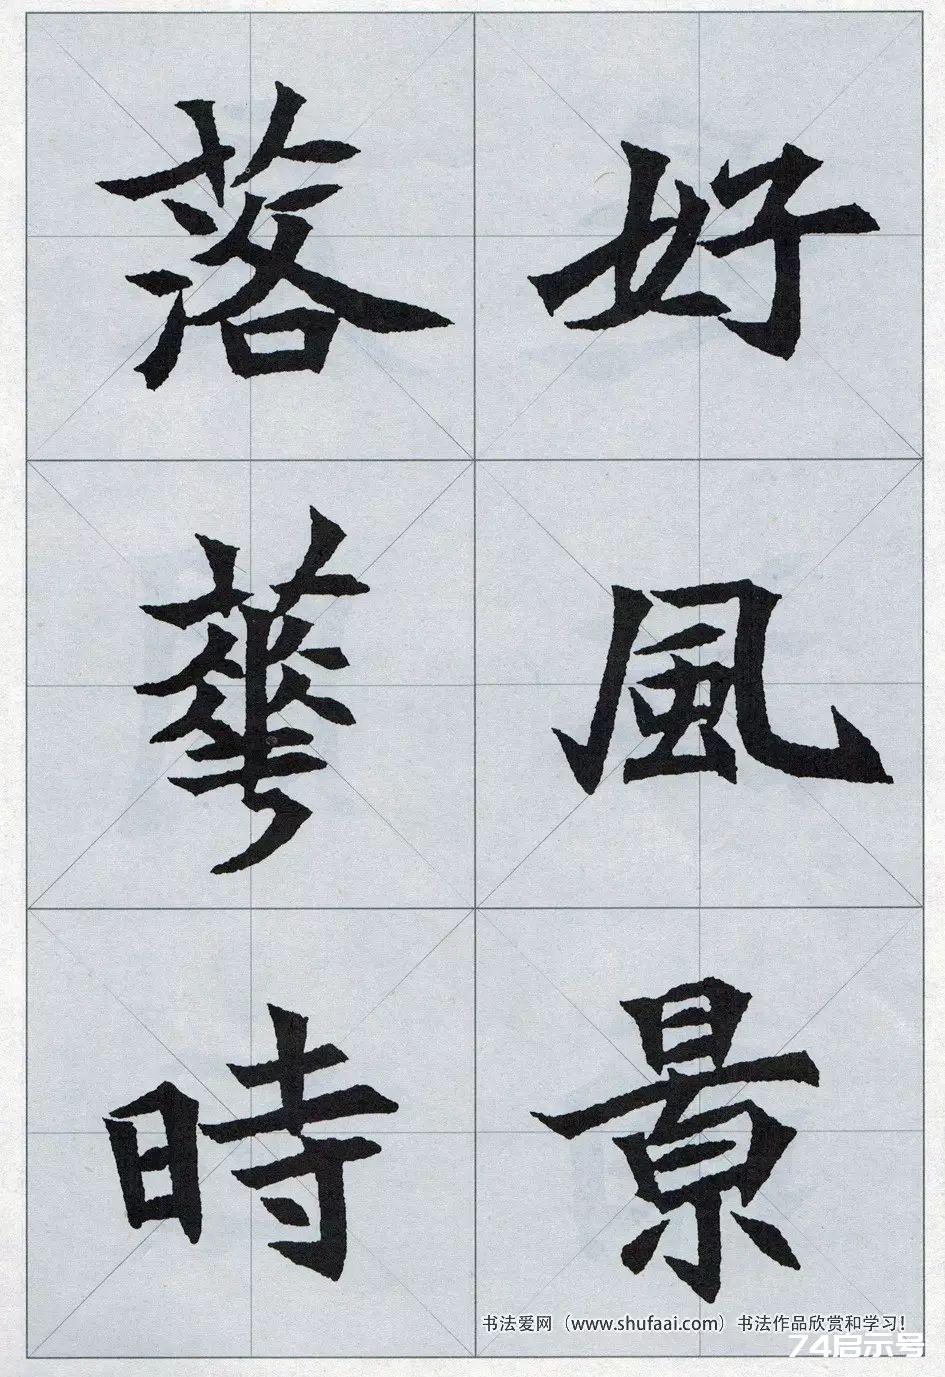 好風景
落華時
书法爱网（www.shufaai.com）书法作品欣赏和学习！
74启示号